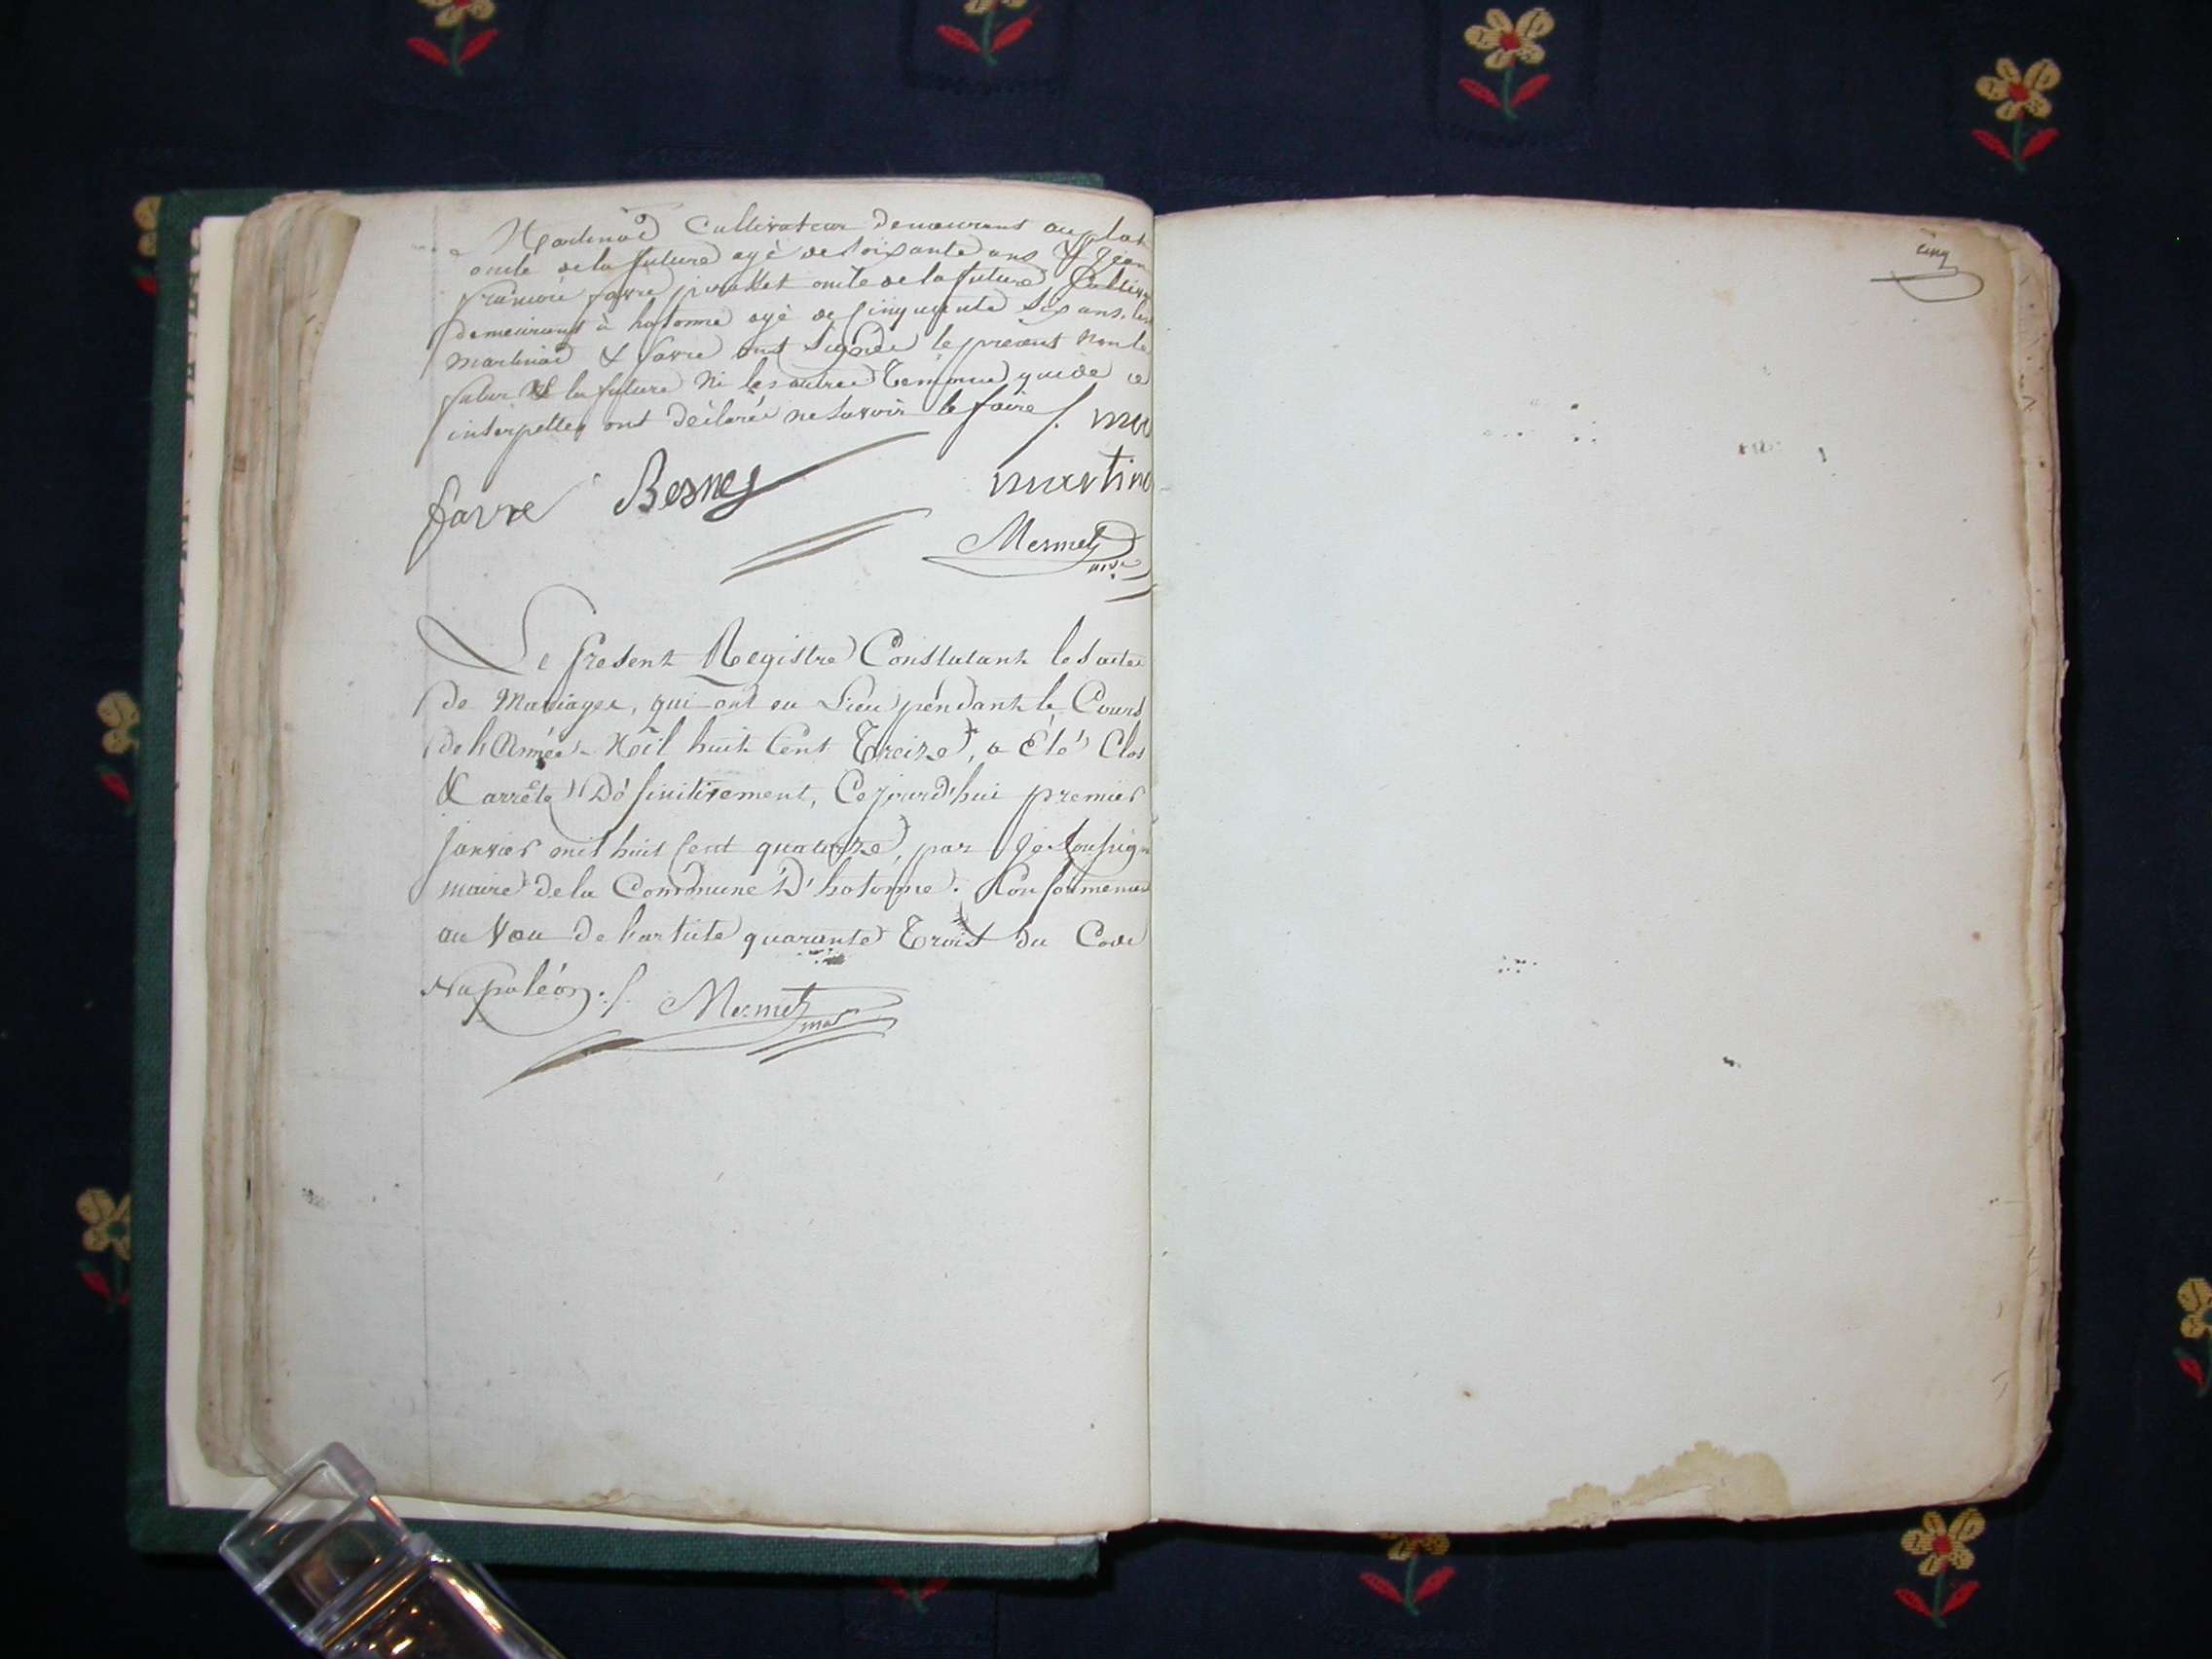 Martinod Cultivateur demeurant au plat
oncle de la future agé de soixante ans & Jean
françois favre oncle de la future Cultiv
demeurant à hotonne agé de cinquante six ans. les
martinod & favre ont signée le present non le
futur & la future Ni les autres temoins qui de ce
interpelles ont déclaré ne savoir le faire /.
favre Besney martino
Mermet
Le present Registre Constatant les actes
de Mariages, qui ont eu Lieu pendant le Cours
de l'Année Mil huit Cent Treize, a été Clos
& arrêté Définitivement, Cejourd'hui premier
janvier mil huit cent quatorze, par je soussign
maire de la Commune D'hotonne. Conformemen
au Vœu de l'article quarante Trois du Code
Napoléon ./. Mermet
cinq